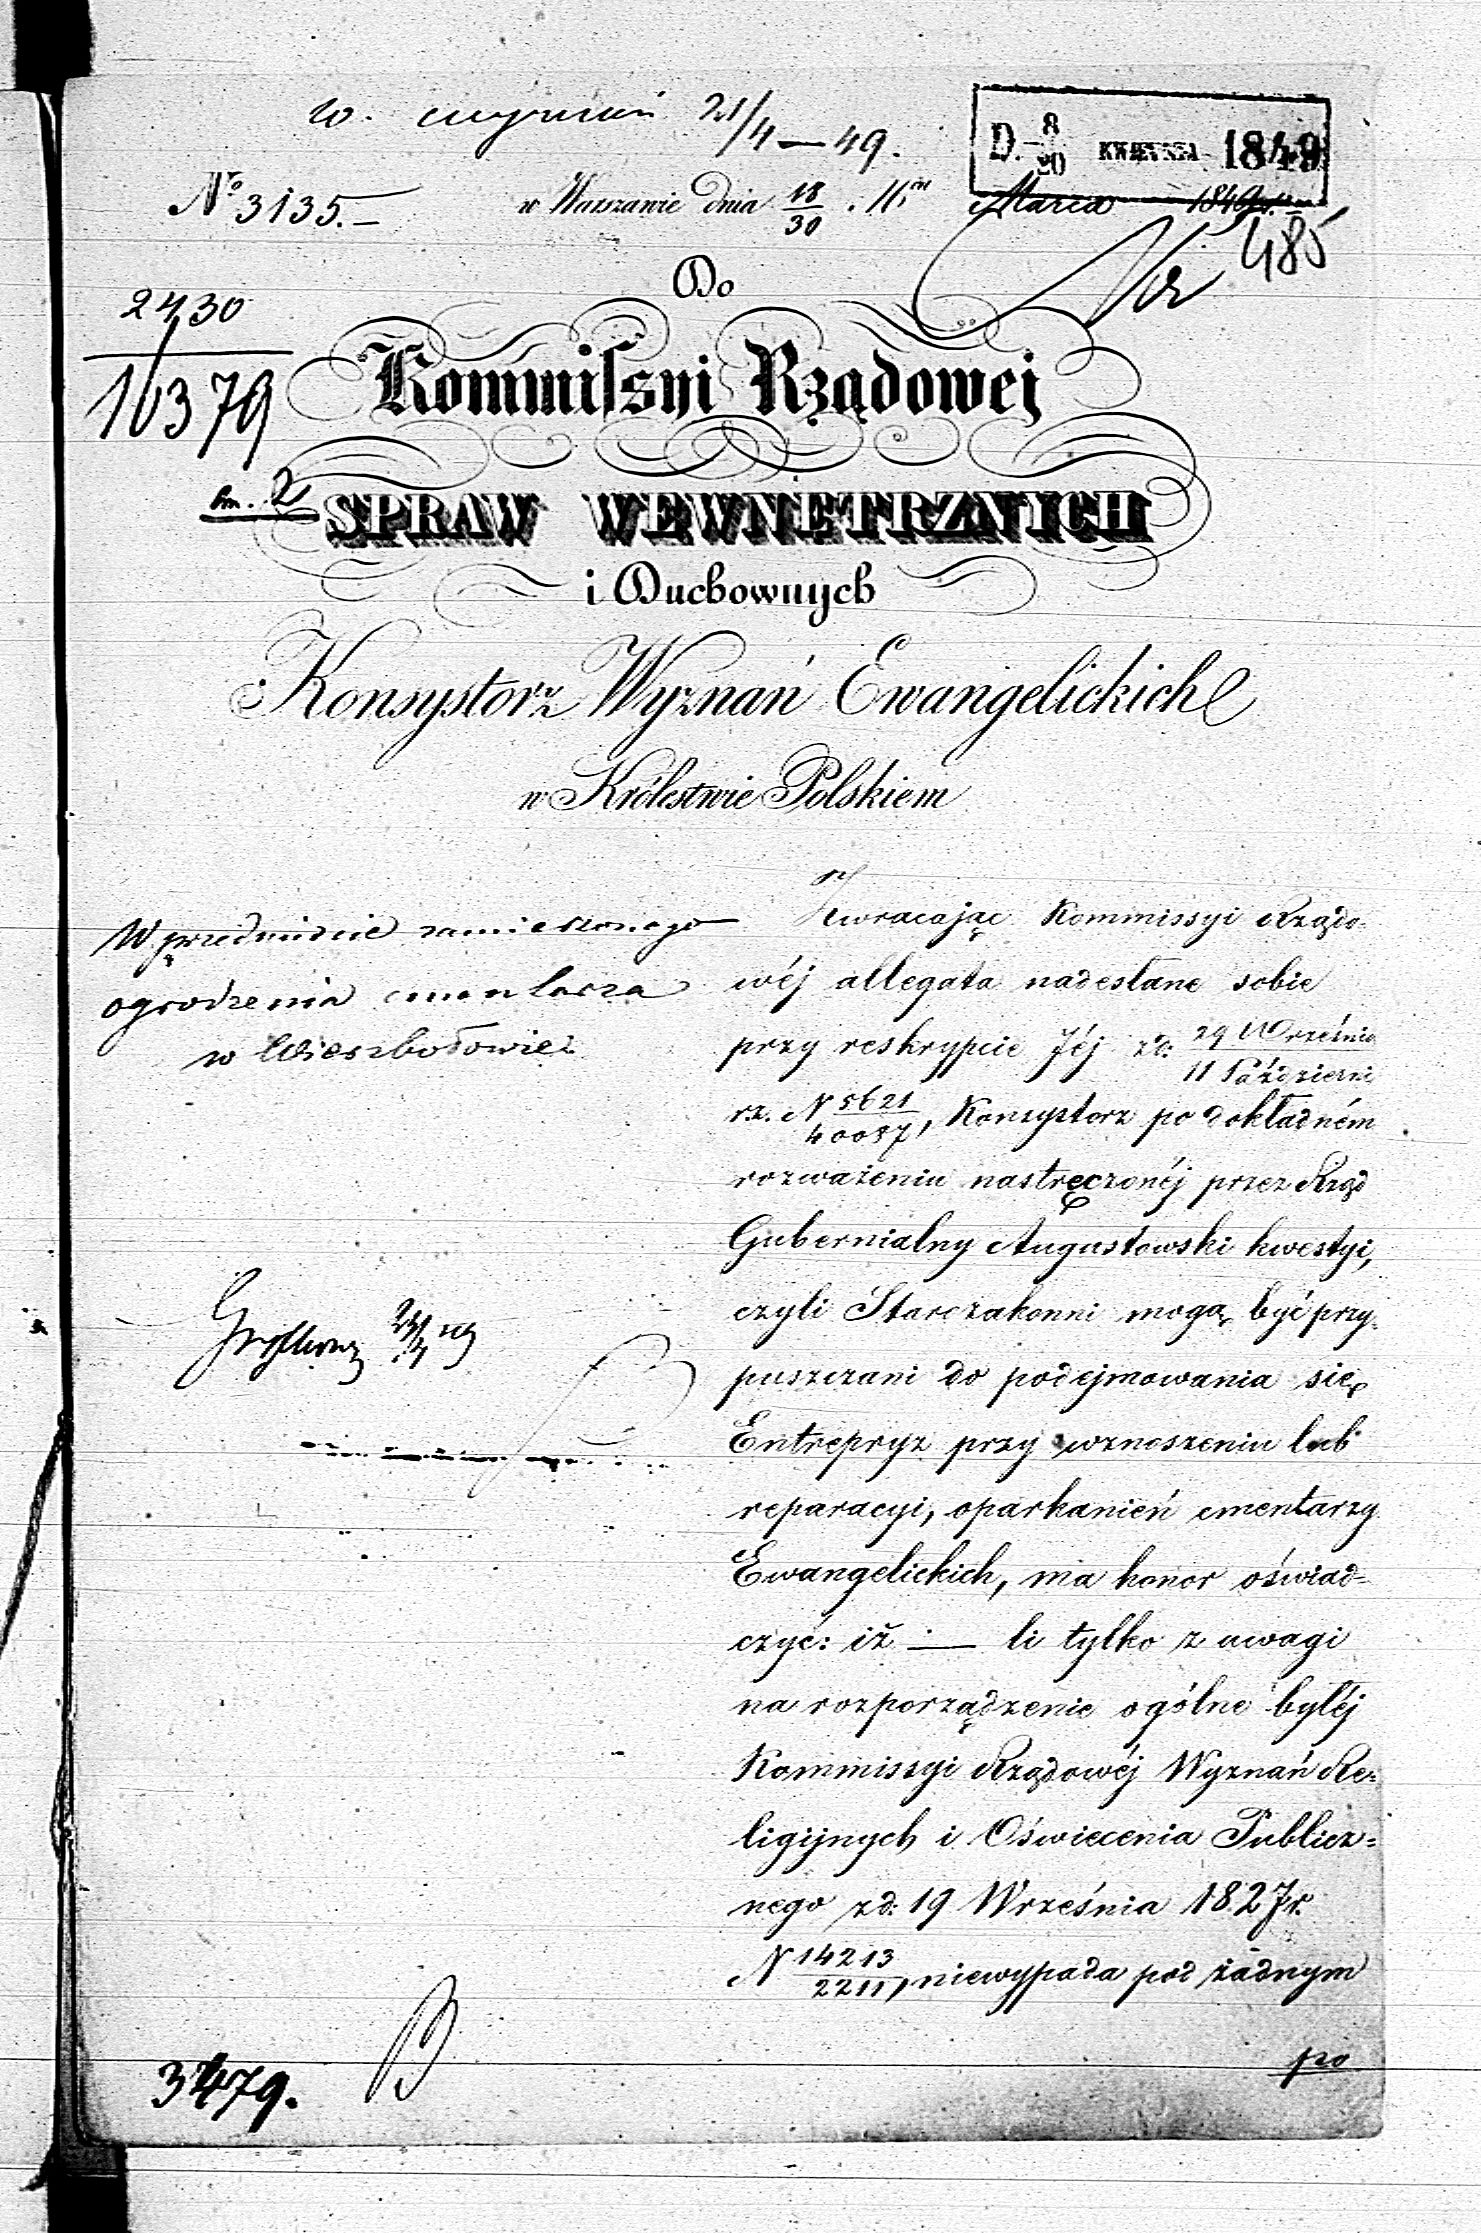 w. 21/4 — 49.
D. 8/20 KWIETNIA 1849
No 3135.
w Warszawie dnia 18/30 Marca 1849 r.
485
2430
16379
Do
Kommissyi Rządowej
SPRAW WEWNĘTRZNYCH
i Duchownych
Konsystorz Wyznań Ewangelickich
w Królestwie Polskiem
W przedmiocie zamierzonego
ogrodzenia cmentarza
w Wierzbołowie
Zwracając Kommissyi Rządo-
wéj allegata nadesłane sobie
przy reskrypcie Jéj zd: 29 Września
11 Październi
rz. N 5621/40057, Konsystorz po dokładném
rozważeniu nastręczonéj przez Rząd
Gubernialny Augustowski kwestyi,
czyli Starozakonni mogą być przy-
puszczani do podejmowania się
Entrepryz przy wznoszeniu lub
reparacyi, oparkanień cmentarzy
Ewangelickich, ma honor oświad-
czyć: iż — li tylko z uwagi
na rozporządzenie ogólne byłéj
Kommissyi Rządowéj Wyznań Re-
ligijnych i Oświecenia Publicz-
nego zd: 19 Września 1827 r.
N 14213/2211, niewypada pod żadnym
po
3479.